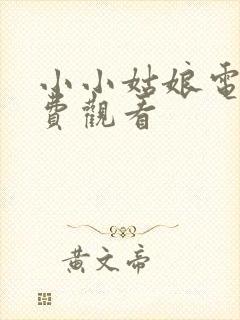 小小姑娘電
費觀看
黃文帝